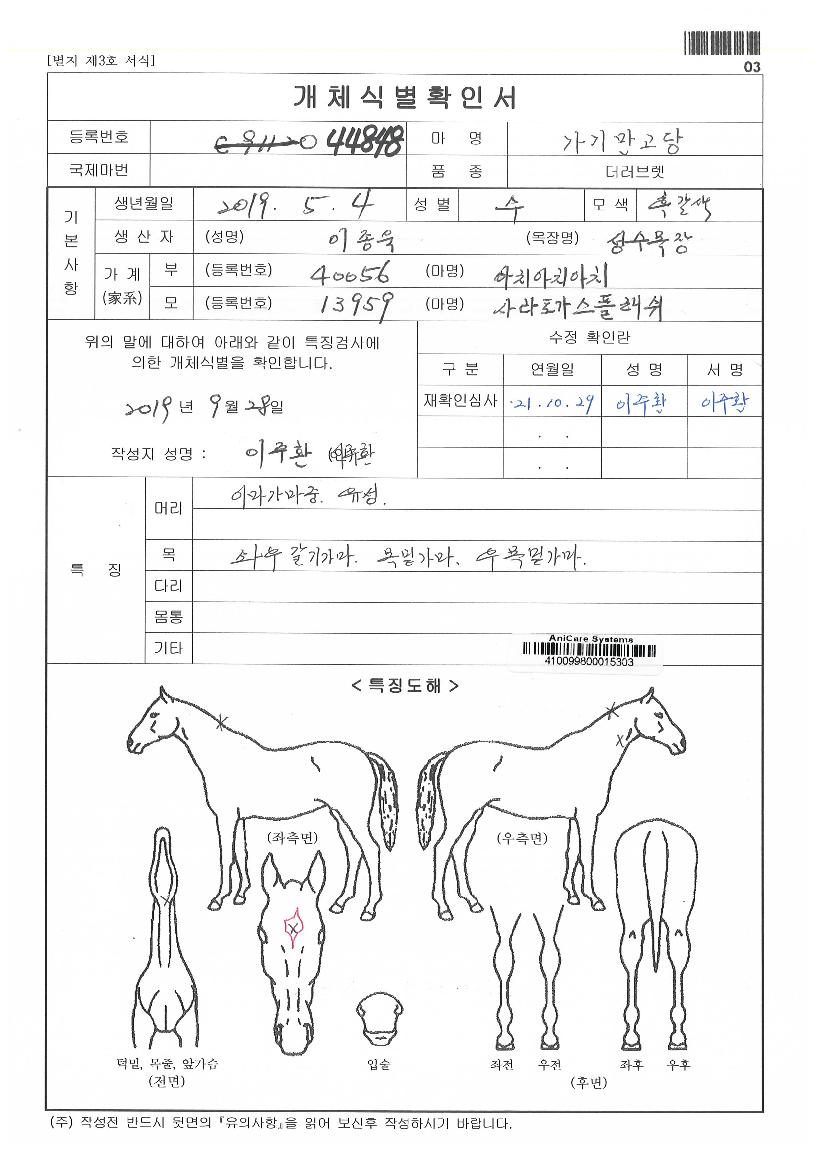 [별지 제3호 서식]
03
개체식별확인서
등록번호 44848 마 명 가기만고당
국제마번 품 종 더러브렛
기본사항
생년월일 2019. 5. 4 성별 수 모색 흑갈색
생산자 (성명) 이종욱 (목장명) 성수목장
가계(家系) 부 (등록번호) 40056 (마명) 아치아치아치
모 (등록번호) 13959 (마명) 사라토가스플래쉬
위의 말에 대하여 아래와 같이 특징검사에
의한 개체식별을 확인합니다.
2019년 9월 28일
작성자 성명 : 이주환 이주환
수정 확인란
구분 연월일 성명 서명
재확인심사 '21.10.29 이주환 이주환
. .
. .
특징
머리 이마가마중. 유성.
목 좌우 갈기가마. 목밑가마. 우목밑가마.
다리
몸통
기타
AniCare Systems
410099800015303
< 특징도해 >
(좌측면) (우측면)
턱밑, 목줄, 앞가슴
(전면)
입술
좌전 우전 좌후 우후
(후면)
(주) 작성전 반드시 뒷면의 『유의사항』을 읽어 보신후 작성하시기 바랍니다.